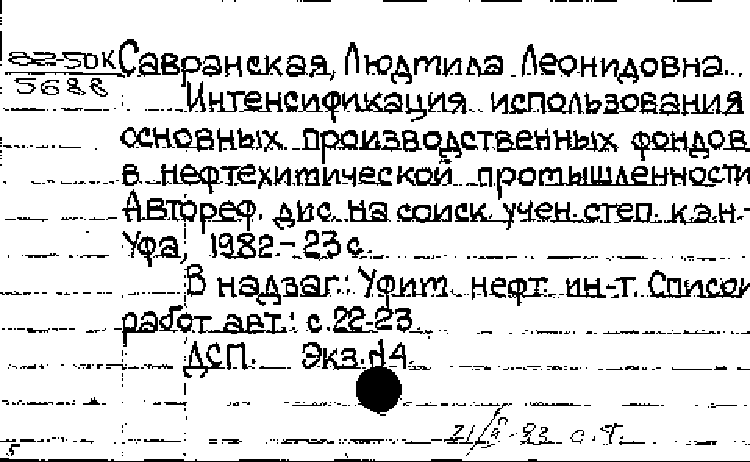 82-50К
5688
Савранская, Людмила Леонидовна.
Интенсификация использования
основных производственных фондов
в нефтехимической промышленности
Автореф. дис. на соиск. учен. степ. к.э.н.-
Уфа, 1982 - 23 с.
В надзаг.: Уфим. нефт. ин-т. Список
работ авт.: с. 22-23.
ДСП. Экз. №4.
5